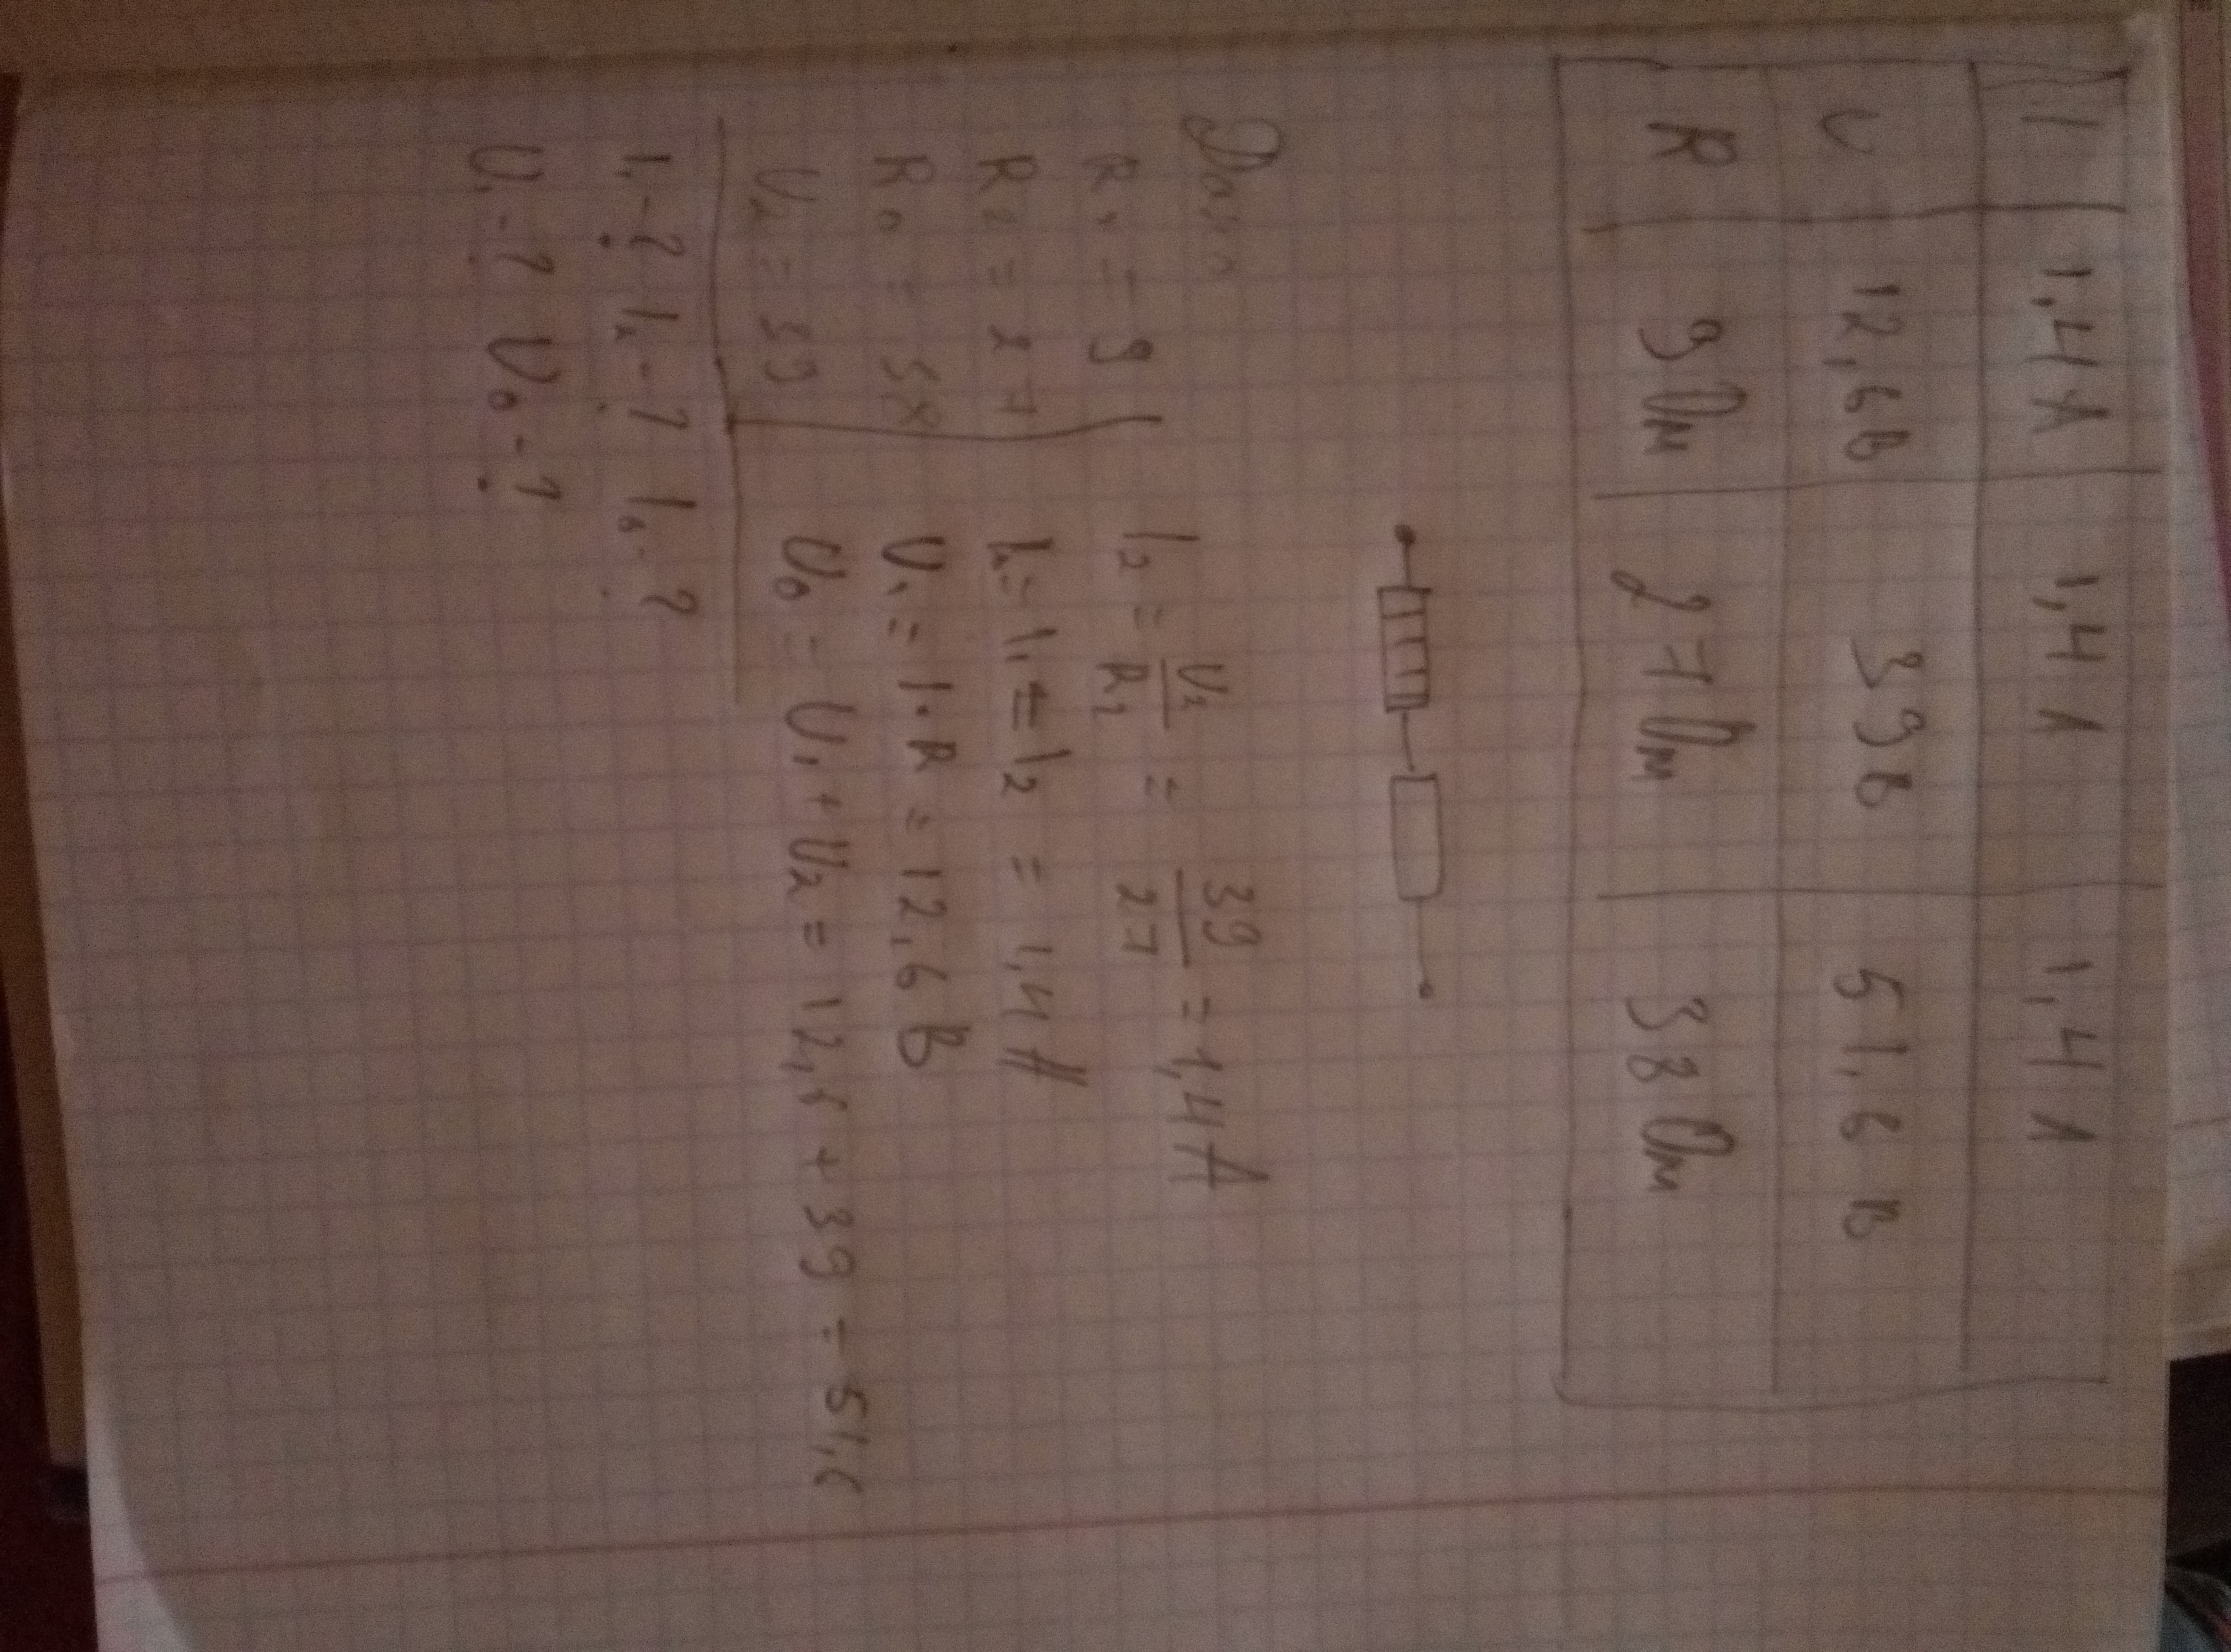 I 1,4 А 1,4 А 1,4 А
U 12,6 В 39 В 51,6 В
R 9 Ом 27 Ом 38 Ом
Дано
R₁ = 9
R₂ = 27
R₀ = 38
U₂ = 39
I₁ - ? I₂ - ? I₀ - ?
U₁ - ? U₀ - ?
I₂ = U₂/R₂ = 39/27 = 1,4 А
I₁ = I₂ = 1,4 А
U₁ = I · R = 12,6 В
U₀ = U₁ + U₂ = 12,6 + 39 = 51,6